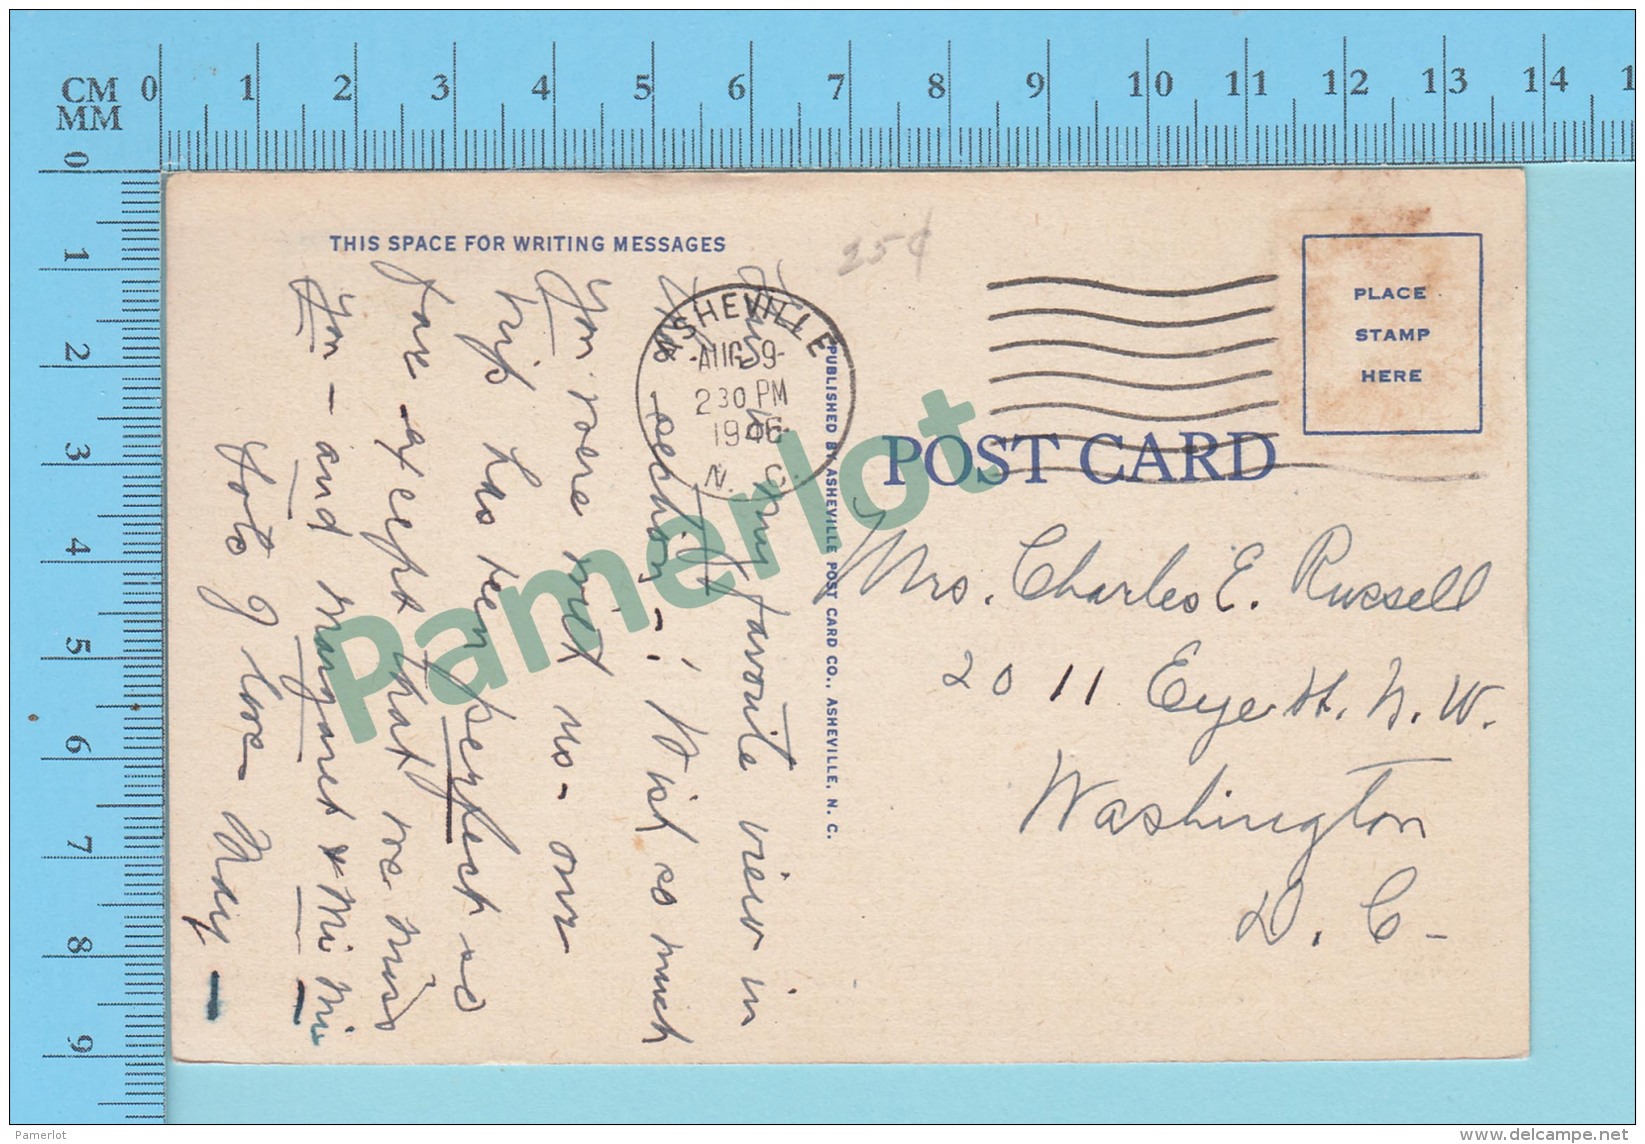 CM
MM
0 1 2 3 4 5 6 7 8 9 10 11 12 13 14 1
0
1
2
3
4
5
6
7
8
9
THIS SPACE FOR WRITING MESSAGES
25¢
ASHEVILLE
AUG 9
2 30 PM
1946
N. C.
PLACE
STAMP
HERE
POST CARD
PUBLISHED BY ASHEVILLE POST CARD CO., ASHEVILLE, N. C.
This is my favorite view in
this section - ! Wish so much
You were with us - our
trip has been perfect so
far except that we miss
You - and Margaret & Mi Mi
Lots of love - Mary
Mrs. Charles E. Russell
2011 Eye St. N. W.
Washington
D. C. -
Pamerlot
Pamerlot
www.delcampe.net